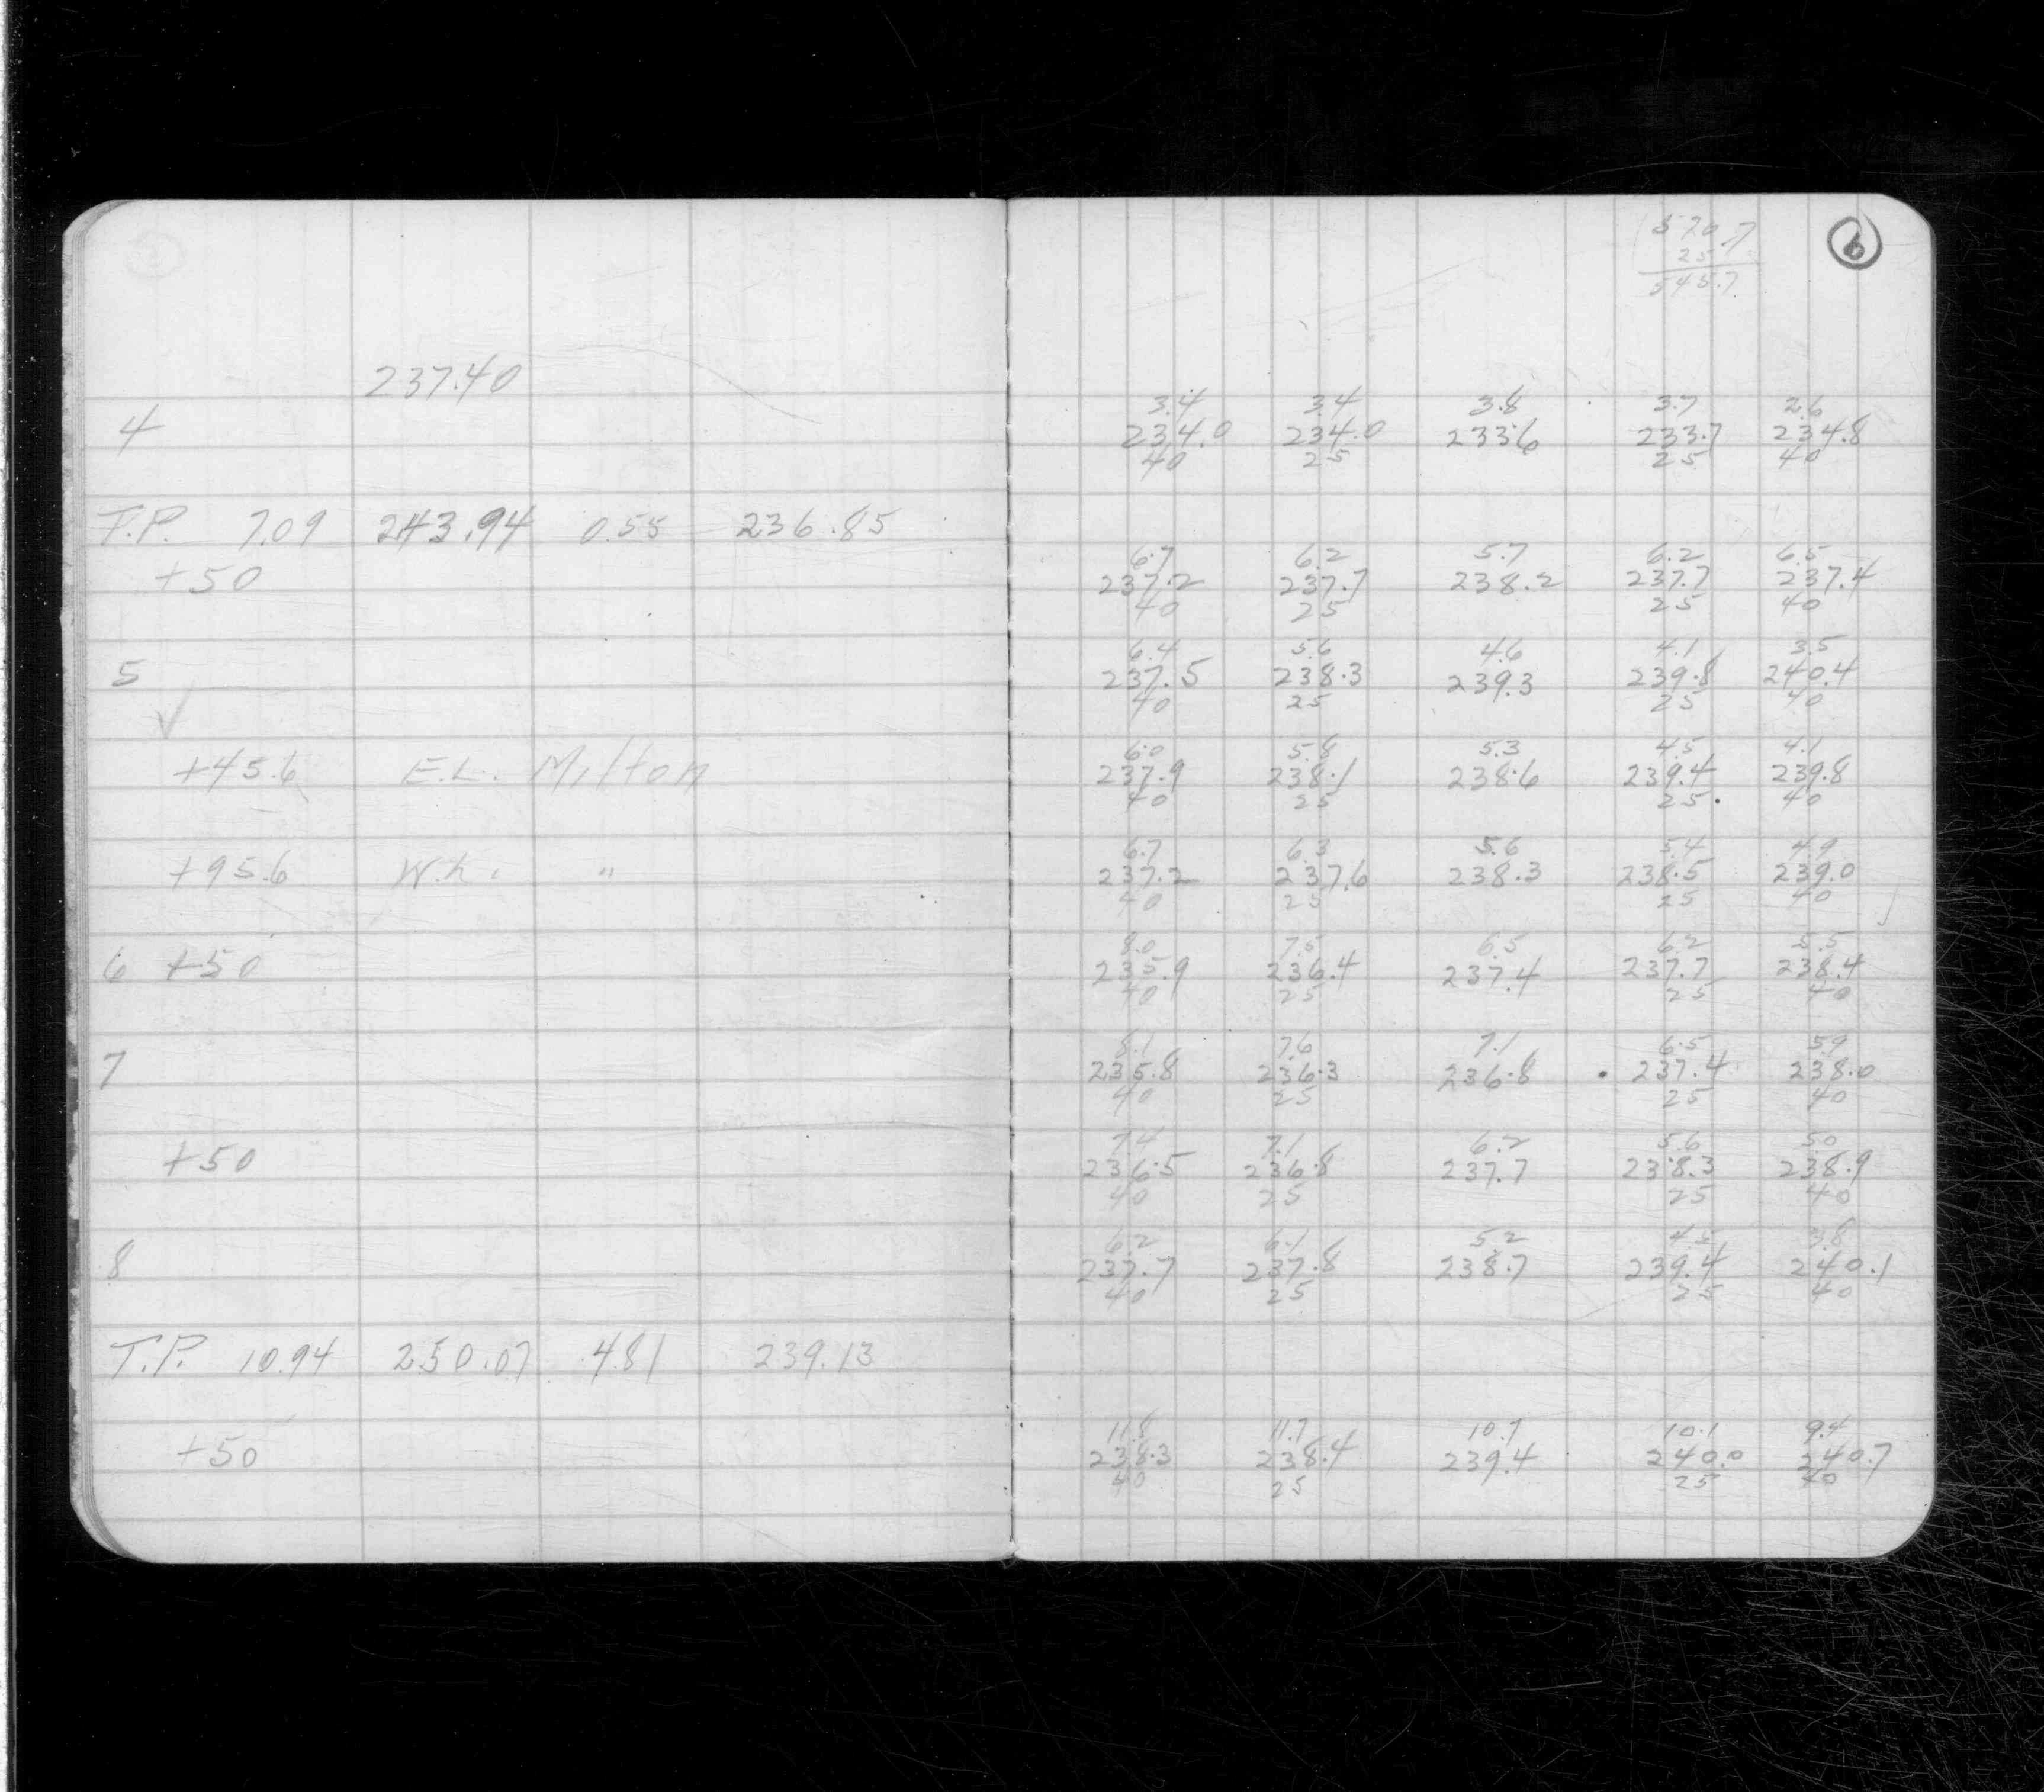 237.40
4
T.P. 7.09 243.94 0.55 236.85
+50
5
✓
+45.6 E.L. Milton
+95.6 W.L. "
6 +50
7
+50
8
T.P. 10.94 250.07 4.81 239.13
+50
570.7
25
545.7
6
3.4 3.4 3.8 3.7 2.6
234.0 234.0 233.6 233.7 234.8
40 25 25 40
6.7 6.2 5.7 6.2 6.5
237.2 237.7 238.2 237.7 237.4
40 25 25 40
6.4 5.6 4.6 4.1 3.5
237.5 238.3 239.3 239.8 240.4
40 25 25 40
6.0 5.8 5.3 4.5 4.1
237.9 238.1 238.6 239.4 239.8
40 25 25 40
6.7 6.3 5.6 5.4 4.9
237.2 237.6 238.3 238.5 239.0
40 25 25 40
8.0 7.5 6.5 6.2 5.5
235.9 236.4 237.4 237.7 238.4
40 25 25 40
8.1 7.6 7.1 6.5 5.9
235.8 236.3 236.8 237.4 238.0
40 25 25 40
7.4 7.1 6.2 5.6 5.0
236.5 236.8 237.7 238.3 238.9
40 25 25 40
6.2 6.1 5.2 4.5 3.8
237.7 237.8 238.7 239.4 240.1
40 25 25 40
11.8 11.7 10.7 10.1 9.4
238.3 238.4 239.4 240.0 240.7
40 25 25 40